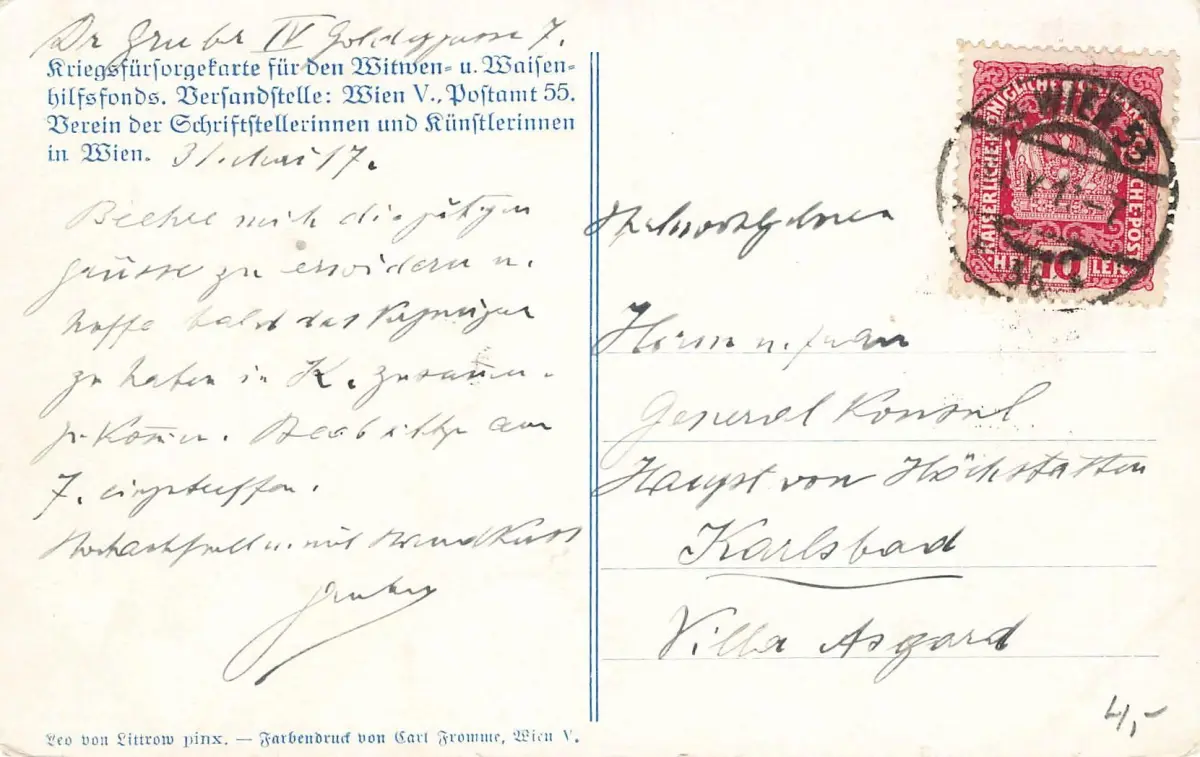 Dr Gruber IV Goldeggasse 7.
Kriegsfürsorgekarte für den Witwen- u. Waisen-
hilfsfonds. Versandstelle: Wien V., Postamt 55.
Verein der Schriftstellerinnen und Künstlerinnen
in Wien. 31. Mai 17.
Beehre mich die gütigen
Grüsse zu erwidern u.
hoffe bald das Vergnügen
zu haben in K. zusam̄en-
zukom̄en. Beabsichtige am
7. einzutreffen.
Hochachtungsvoll u. mit Handkuss
Gruber
Hochwohlgeboren
Herrn u. Frau
General Konsul
Haupt von Höchstatten
Karlsbad
Villa Asgard
KAISERLICHE KÖNIGLICHE ÖSTERREICHISCHE POST
HELLER 10 HELLER
WIEN 53
4,-
Leo von Littrow pinx. — Farbendruck von Carl Fromme, Wien V.